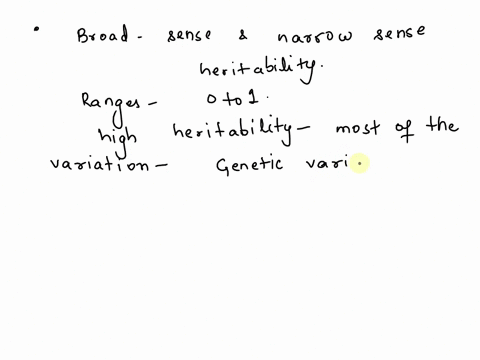 • Broad - sense & narrow sense
heritability.
Ranges - 0 to 1.
high heritability - most of the
variation - Genetic vari